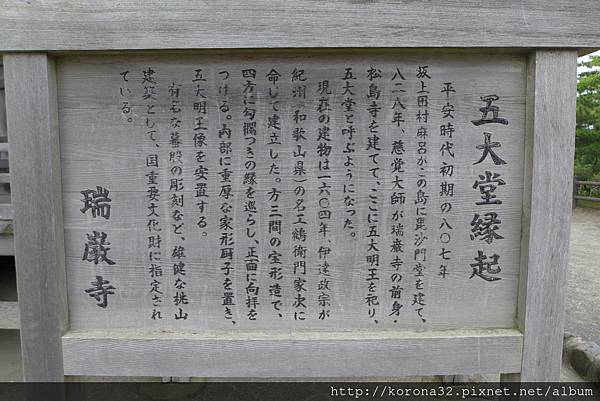 五大堂縁起
平安時代初期の八〇七年
坂上田村麻呂がこの島に毘沙門堂を建て、
八二八年、慈覚大師が瑞巌寺の前身・
松島寺を建てて、ここに五大明王を祀り、
五大堂と呼ぶようになった。
現在の建物は一六〇四年、伊達政宗が
紀州（和歌山県）の名工鶴衛門家次に
命じて建立した。方三間の宝形造で、
四方に勾欄つきの縁を巡らし、正面に向拝を
つける。内部に重厚な家形厨子を置き、
五大明王像を安置する。
有名な蟇股の彫刻など、雄健な桃山
建築として、国重要文化財に指定され
ている。
瑞巌寺
http://korona32.pixnet.net/album